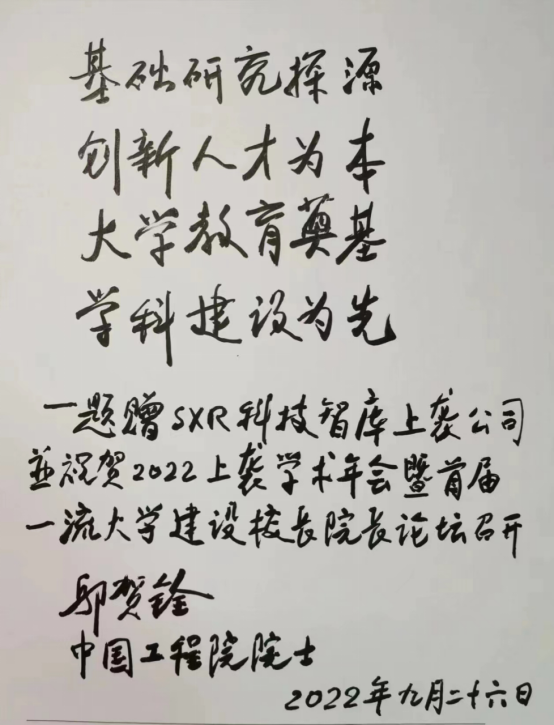 基础研究探源
创新人才为本
大学教育奠基
学科建设为先
一题赠SXR科技智库上袭公司
并祝贺2022上袭学术年会暨首届
一流大学建设校长院长论坛召开
邬贺铨
中国工程院院士
2022年九月二十六日